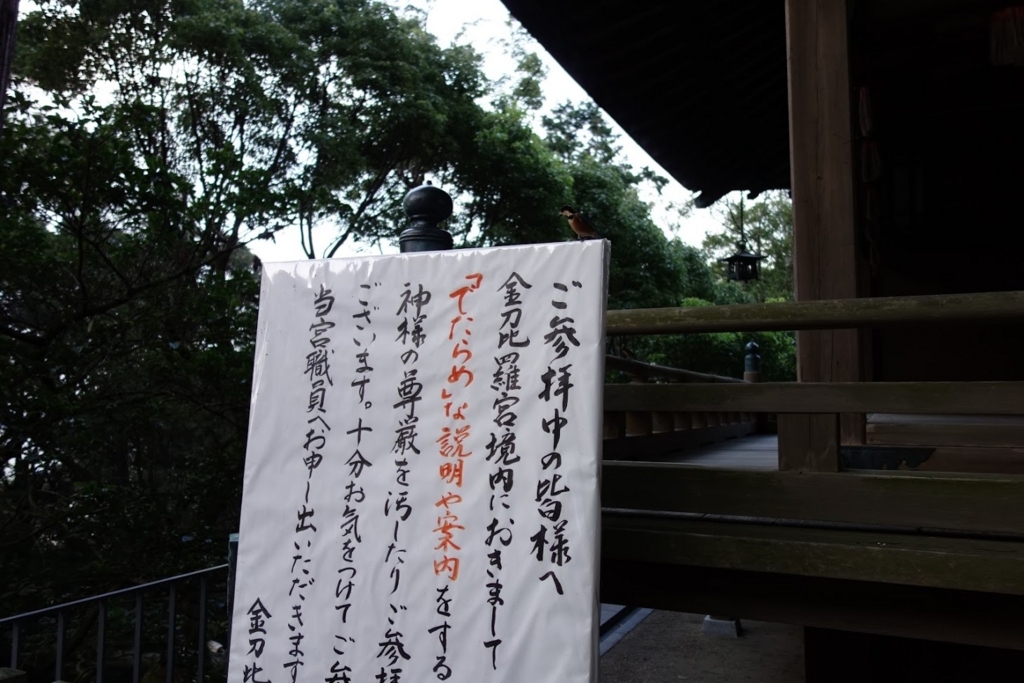 ご参拝中の皆様へ
金刀比羅宮境内におきまして
『でたらめ』な説明や案内をする
神様の尊厳を汚したりご参拝
ございます。十分お気をつけてご参
当宮職員へお申し出いただきます
金刀比